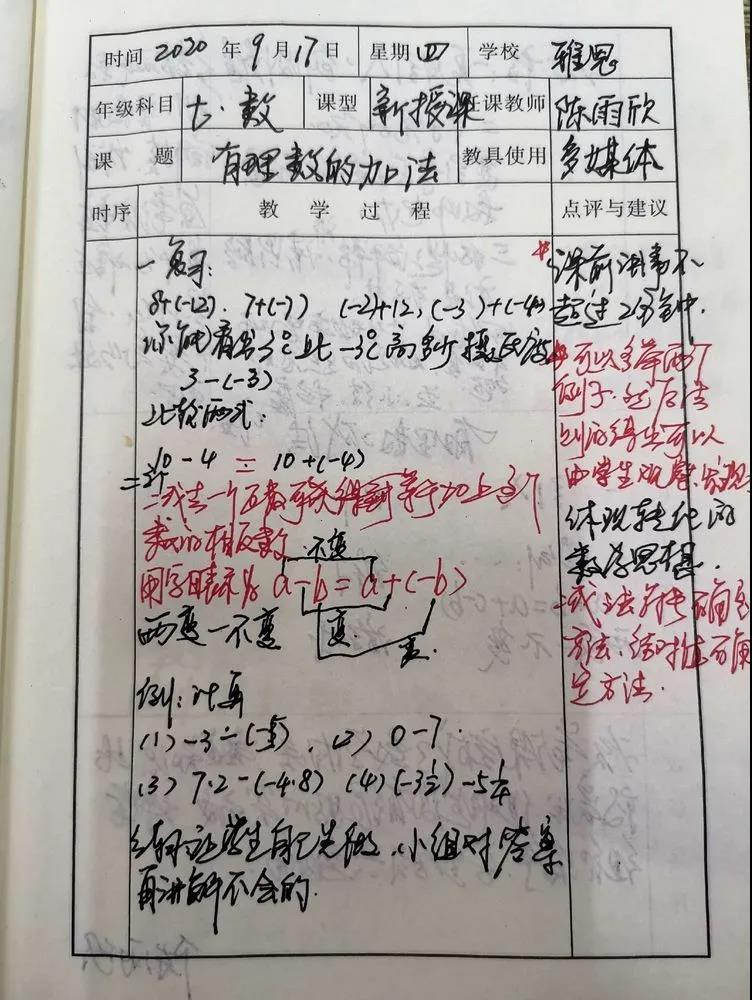 时间 2020 年 9 月 17 日 星期 四 学校 雅恩
年级科目 七·数 课型 新授课 任课教师 陈雨欣
课题 有理数的加法 教具使用 多媒体
时序 教学过程 点评与建议
一、复习:
8+(-12). 7+(-7) (-2)+12, (-3)+(-4)
你能看出3℃比-3℃高多少摄氏度
3-(-3)
比较两式:
10-4 = 10+(-4)
二、减去一个数等于加上这个
数的相反数
用字母表示为 a-b=a+(-b)
不变
两变一不变 变. 变.
例:计算
(1) -3-(-5), (2) 0-7
(3) 7.2-(-4.8) (4) (-3½)-5¼
让学生自己先做,小组对答案
再讲解不会的.
课前讲事不
超过2分钟.
可以多举两个
例子.然后法
则的得出可以
由学生观察,发现
体现转化的
数学思想.
减法
方法.
定方法.